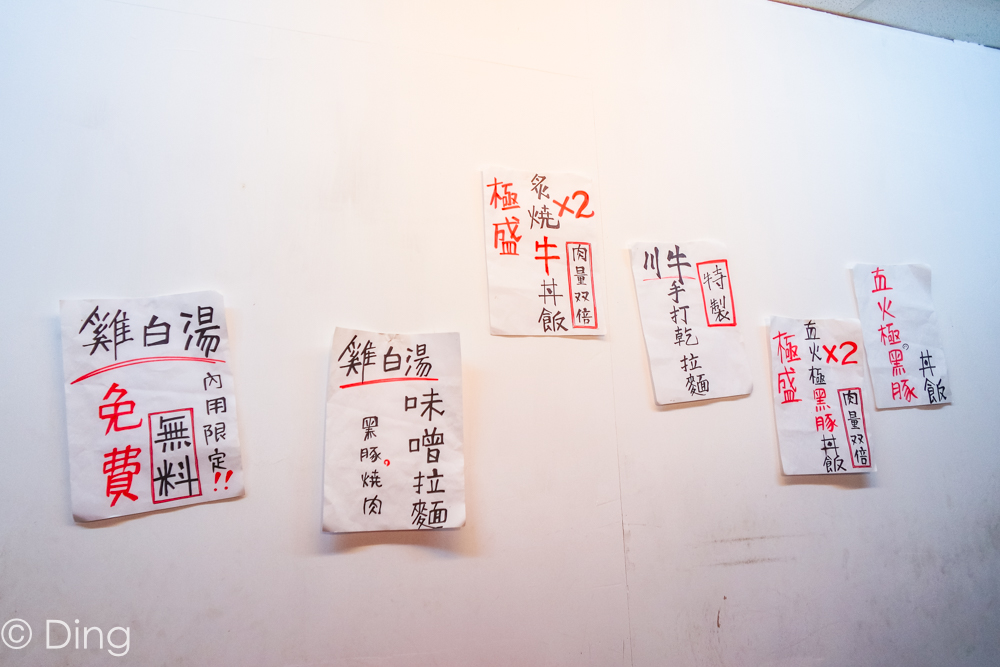 雞白湯
內用限定!!
無料
免費
雞白湯
味噌拉麵
黑豚燒肉
極盛
炙燒牛丼飯
x2
肉量双倍
特製
川牛
手打乾拉麵
極盛
直火極黑豚丼飯
x2
肉量双倍
直火極黑豚
丼飯
© Ding